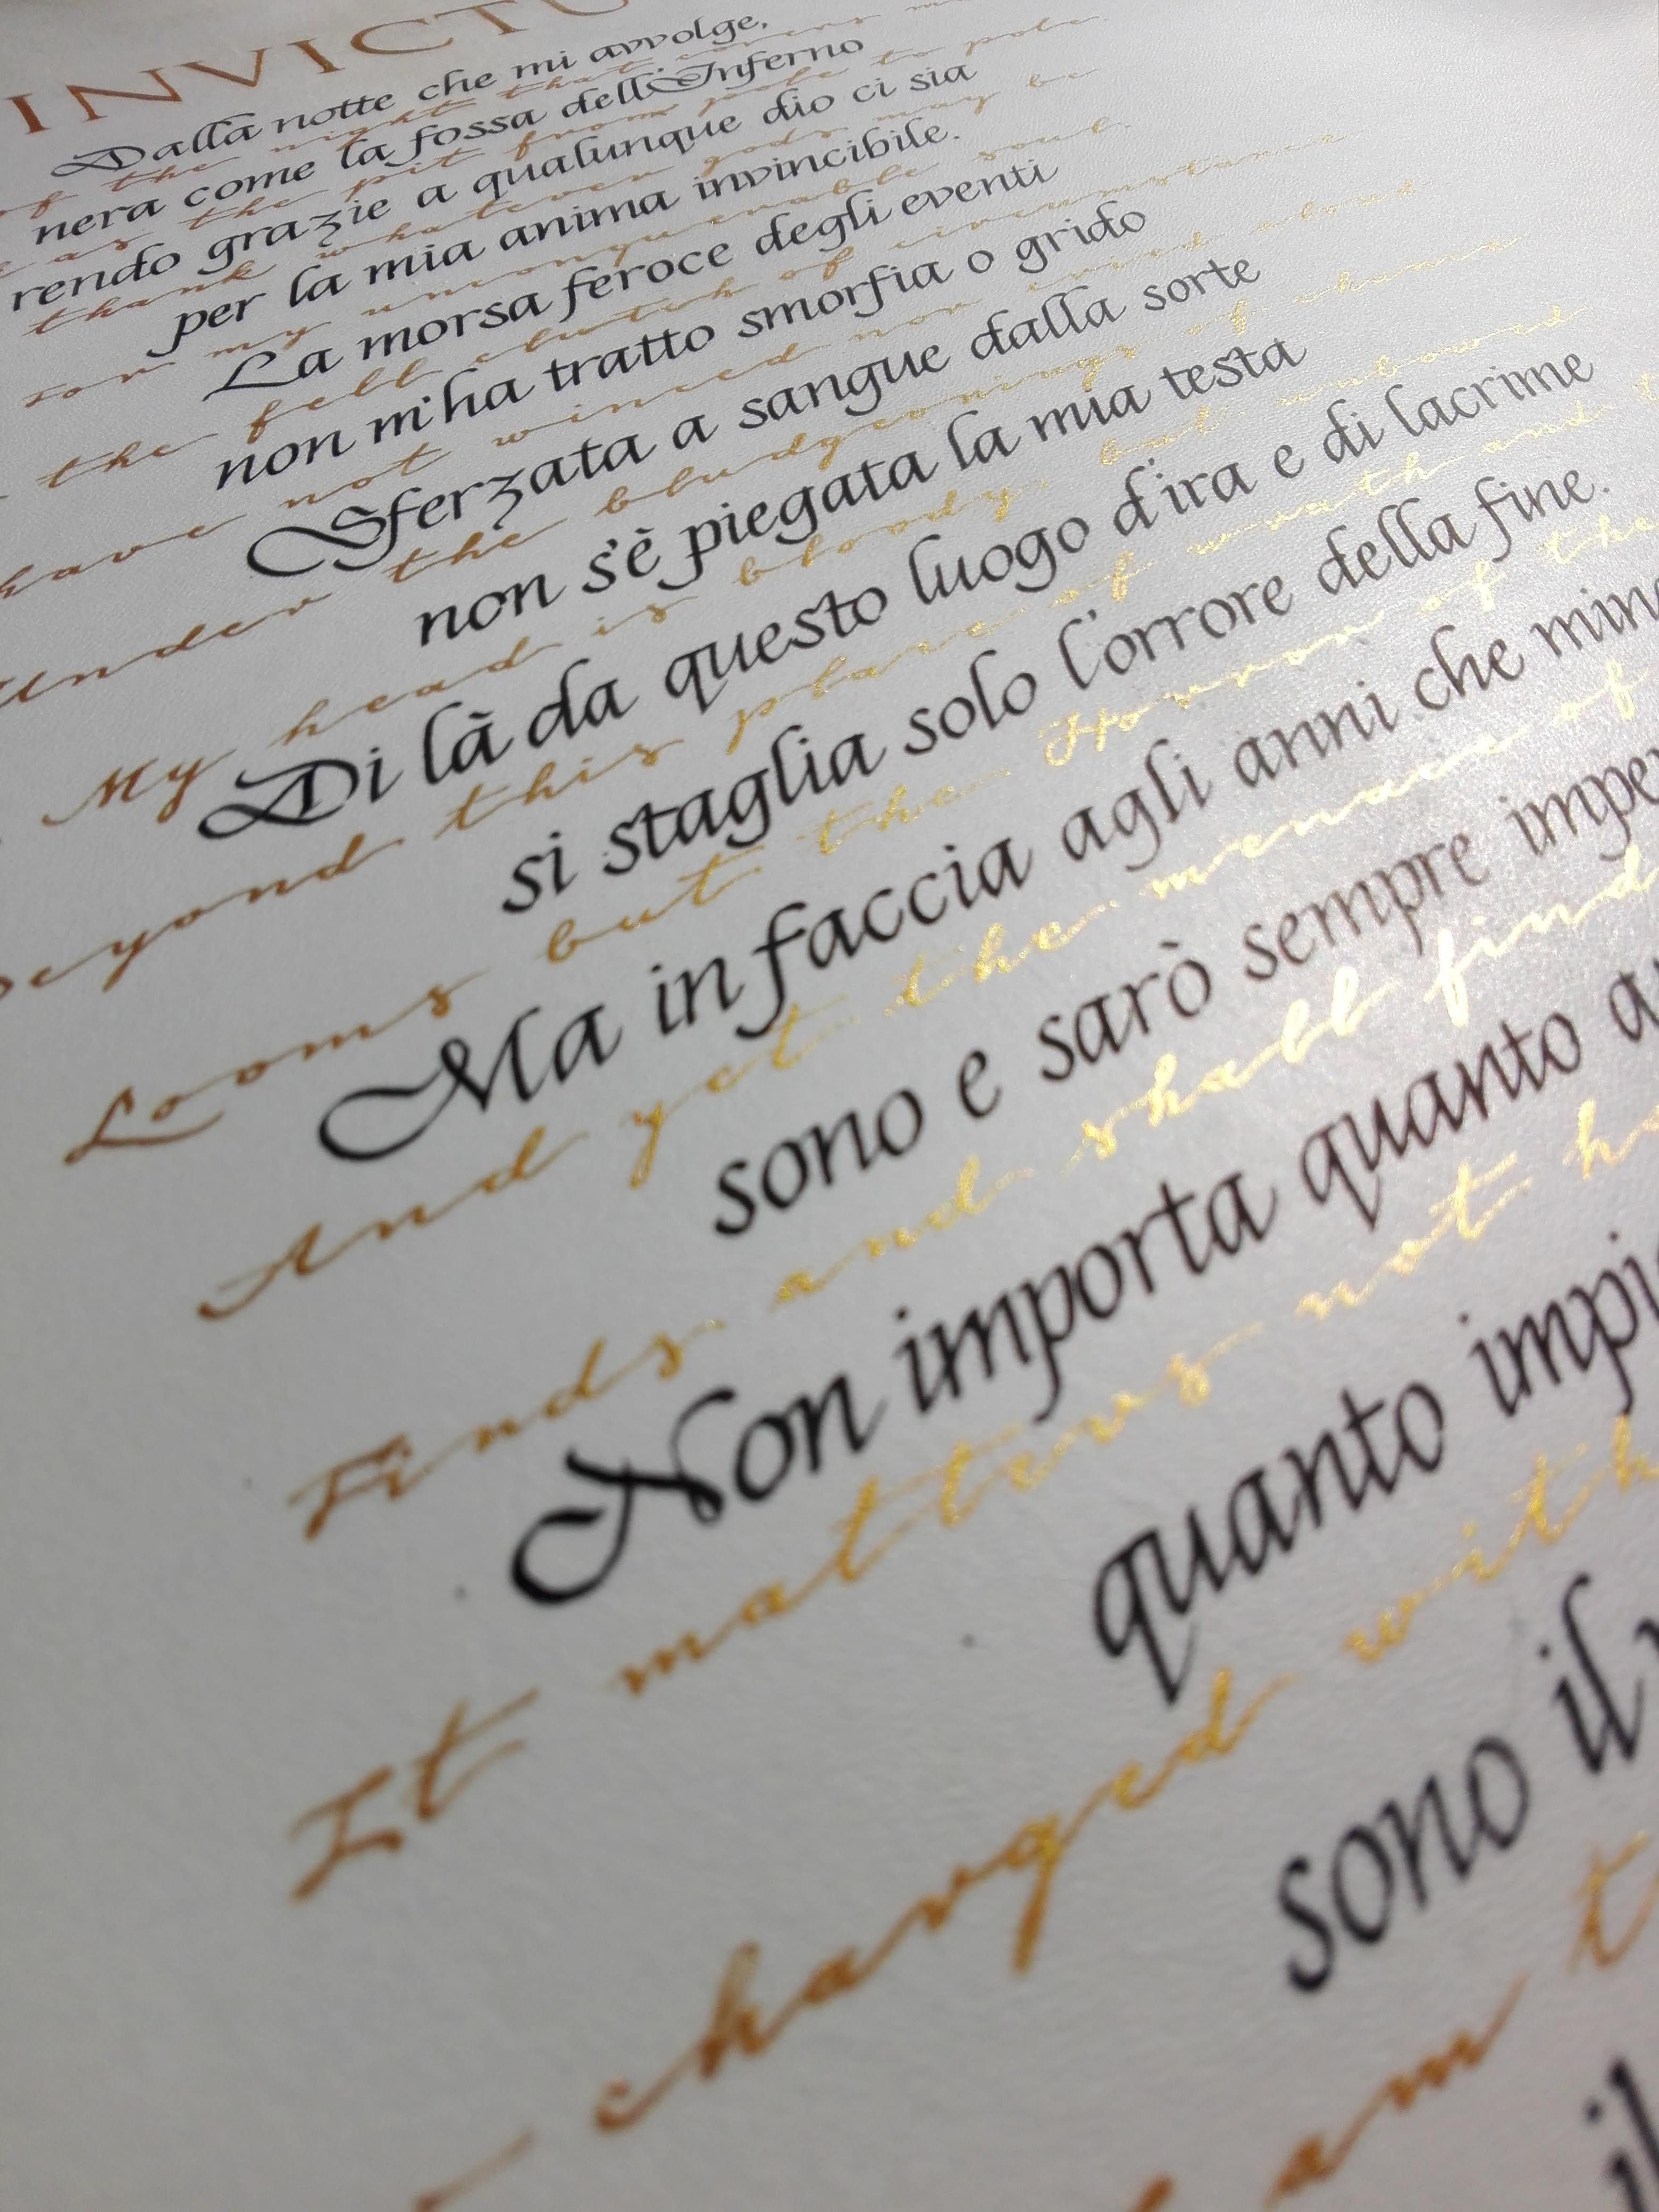 INVICTU
Dalla notte che mi avvolge,
of the night that covers me
nera come la fossa dell'Inferno
as the pit from pole to pole
rendo grazie a qualunque dio ci sia
thank whatever gods may be
per la mia anima invincibile.
for my unconquerable soul.
La morsa feroce degli eventi
the fell clutch of circumstance
non m'ha tratto smorfia o grido
have not winced nor cried aloud
Sferzata a sangue dalla sorte
Under the bludgeonings of chance
non s'è piegata la mia testa
My head is bloody, but unbowed
Di là da questo luogo d'ira e di lacrime
Beyond this place of wrath and t
si staglia solo l'orrore della fine.
Looms but the Horror of the
Ma in faccia agli anni che mina
And yet the menace of
sono e sarò sempre impe
Finds and shall find
Non importa quanto
It matters not h
quanto impi
charged with
sono il
am t
il